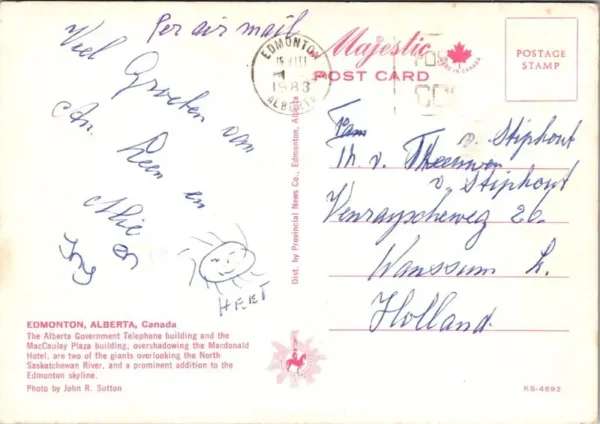 Per air mail
Viel Groeten van
An, Leen en
Mie en
HEET
EDMONTON
1983
ALBERTA
Majestic
MADE IN CANADA
POST CARD
POSTAGE
STAMP
Fam
v. Stiphout
Th. v. Theeuwen
v. Stiphout
Venrayscheweg 26.
Wanssum L.
Holland
Dist. by Provincial News Co., Edmonton, Alberta
EDMONTON, ALBERTA, Canada
The Alberta Government Telephone building and the
MacCauley Plaza building, overshadowing the Macdonald
Hotel, are two of the giants overlooking the North
Saskatchewan River, and a prominent addition to the
Edmonton skyline.
Photo by John R. Sutton
KS-4692